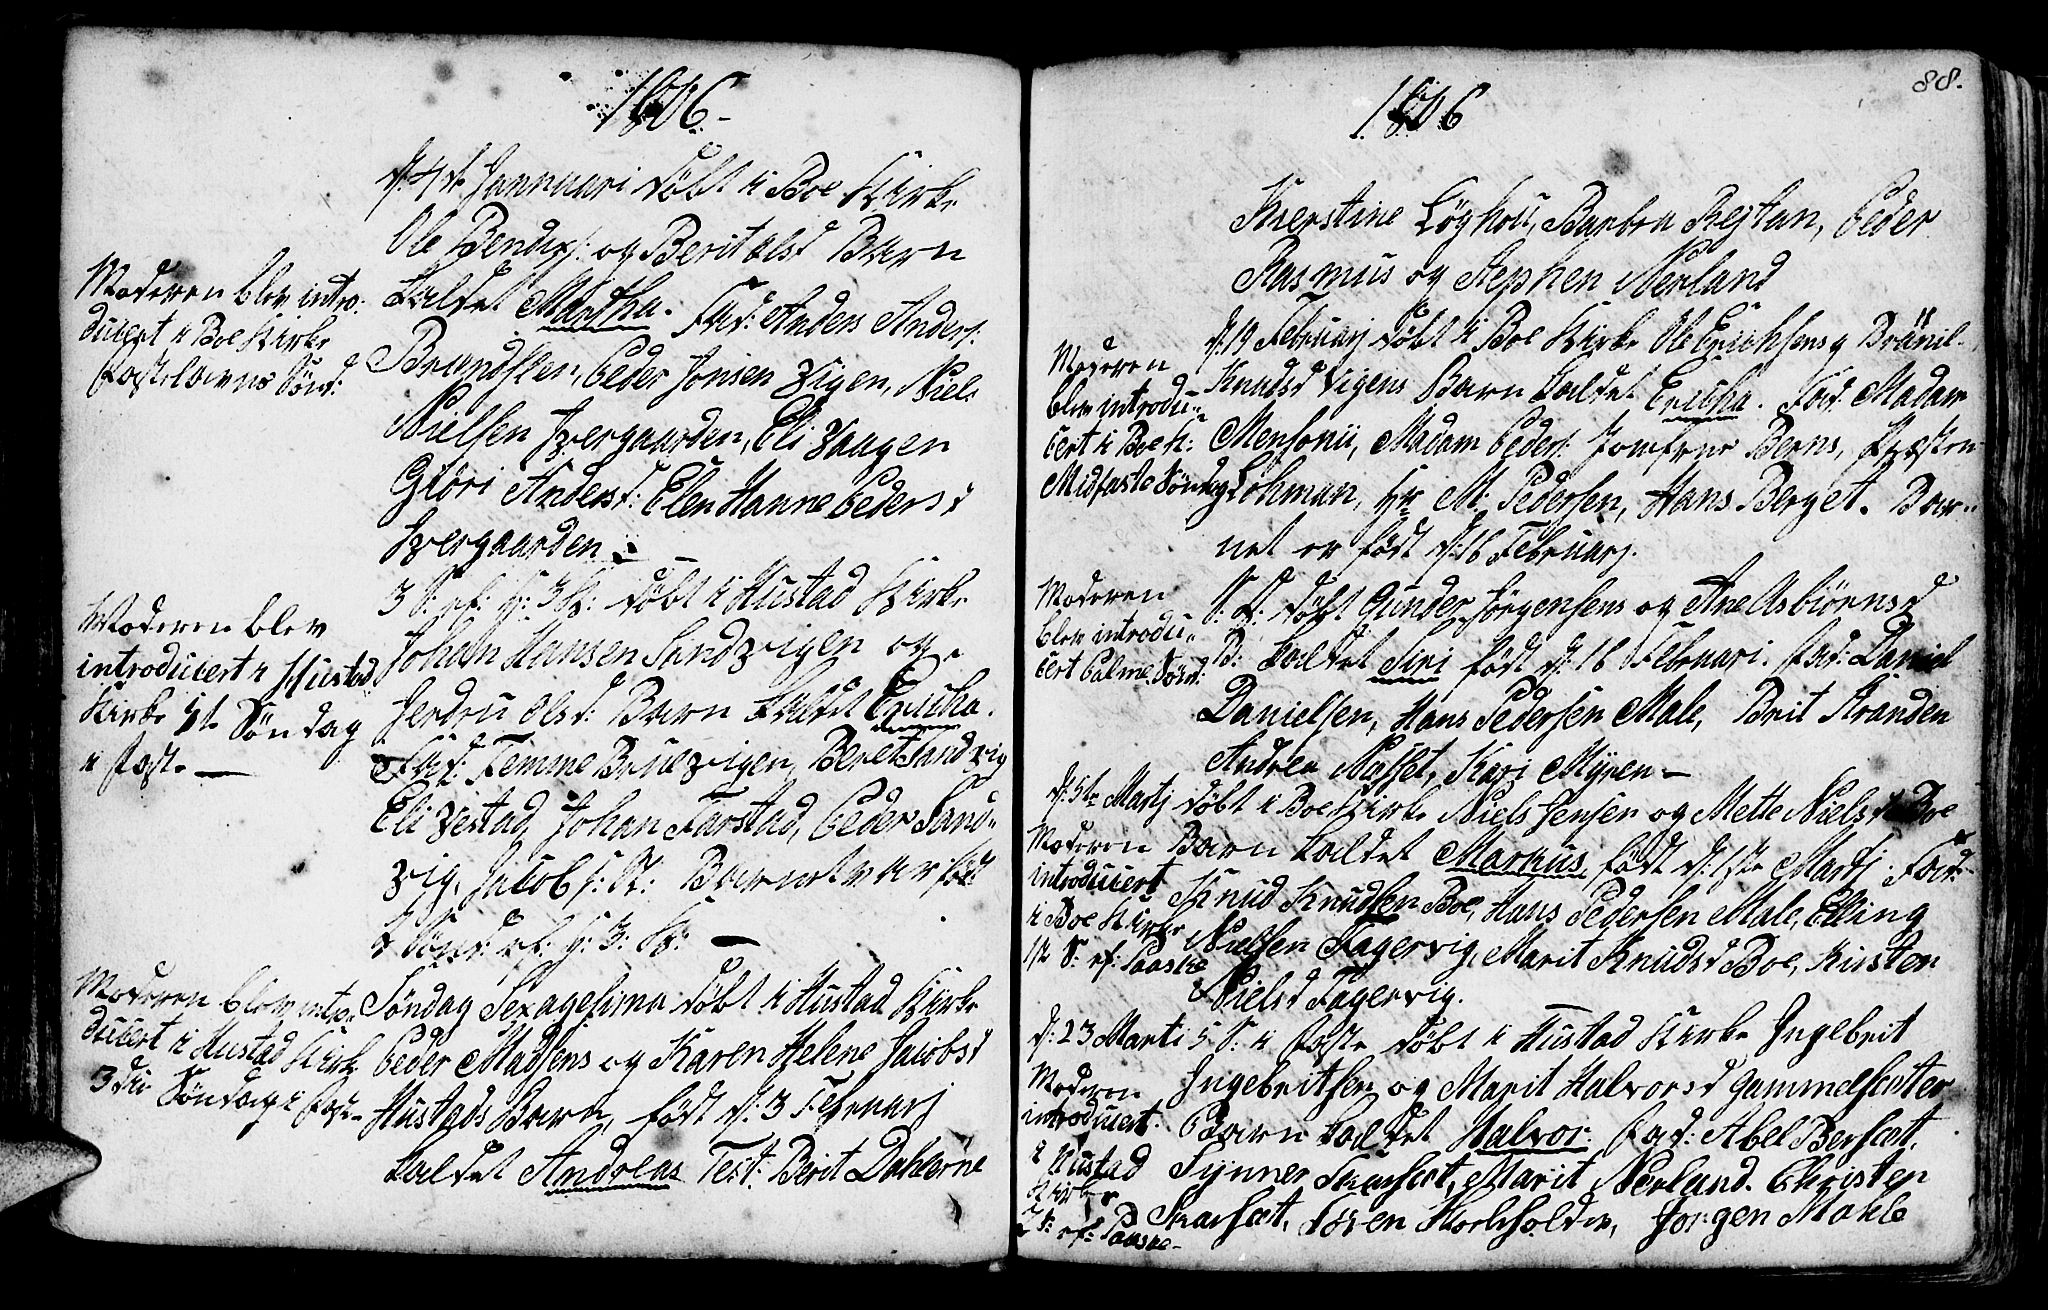 1806
d: 4de Jannuari döbt i Boe Kirke
Ole Bendix: og Berit Olsd Barn
kaldet Martha. Fad: Anders Anders:
Brandslen, Peder Jonsen Vigen, Niels
Nielsen Hvergaarden, Eli Vaagen
Giöri Andersd: Elen Hanne Pedersd
Hvergaarden
Moderen blev intro:
ducert i Boe Kirke
Fastelavns Sönd:
3 S: ef: H: 3 K: döbt i Hustad Kirke
Johan Hansen Sandvigen og
Jerdru Olsd: Barn kaldt Ericha.
Fad: Femme Bruevigen, Beret Sandvig
Eli Vestad, Johan Farstad, Peder Sand-
vig, Jacob Barnet var födt
Sönd: ef: H: 3: K:
Moderen blev
introducert i Hustad
Kirke 5te Söndag
i Faste
Söndag Sexagesima döbt i Hustad Kirke
Peder Madsens og Karen Helene Jacobsd
Hustads Barn, födt d: 3 Februarj
kaldet Andreas Test: Berit Dahlerne
Moderen blev intro
ducert i Hustad Kirke
3die Söndag i Faste
88.
1806
Kierstine Löghou, Barbra Rejtan, Peder
Rasmus og Stephen Nerland
d: 19 Februarj döbt i Boe Kirke Ole Erichsens og Brönil-
Knudsd Vigens Barn kaldet Ericha. Fad. Madam
Mensonii, Madam Peders: Jomfrue Berns,
Lohman, Hr M: Pedersen, Hans Berget. Bar-
net er födt d: 16 Februarj.
Moderen
blev introdu-
cert i Boe K:
Midfaste Söndag
S: D: döbt Gunder Jörgensens og Ane Asbiörnsd
B: kaldet Siri födt d: 16 Februari. Fad: Daniel
Danielsen, Hans Pedersen Male, Brit Stranden
Andrea Nasset, Kari Myren
Moderen
blev introdu-
cert Palme Sönd:
d: 5te Martj döbt i Boe Kirke Niels Jensen og Mette Nielsd Boe
Barn kaldet Markus, födt d: 1ste Martj. Fad:
Knud Knudsen Boe, Hans Pedersen Male, Elling
Nielsen Fagervig, Marit Knudsd Boe, Kirsten
Nielsd Fagervig.
Moderen
introducert
i Boe Kirke
S: ef: Paaske
d: 23 Marti 5 S: i Faste döbt i Hustad Kirke Ingebrit
Ingebritsen og Marit Halvorsd Gammelsæter
Barn kaldet Halvor. Fad: Abel Bersæt,
Synner Skarsæt, Marit Nerland. Christen
Skarsæt, Sören Jörgen Mahle
Moderen
introducert.
i Hustad
Kirke
ef: Paaske